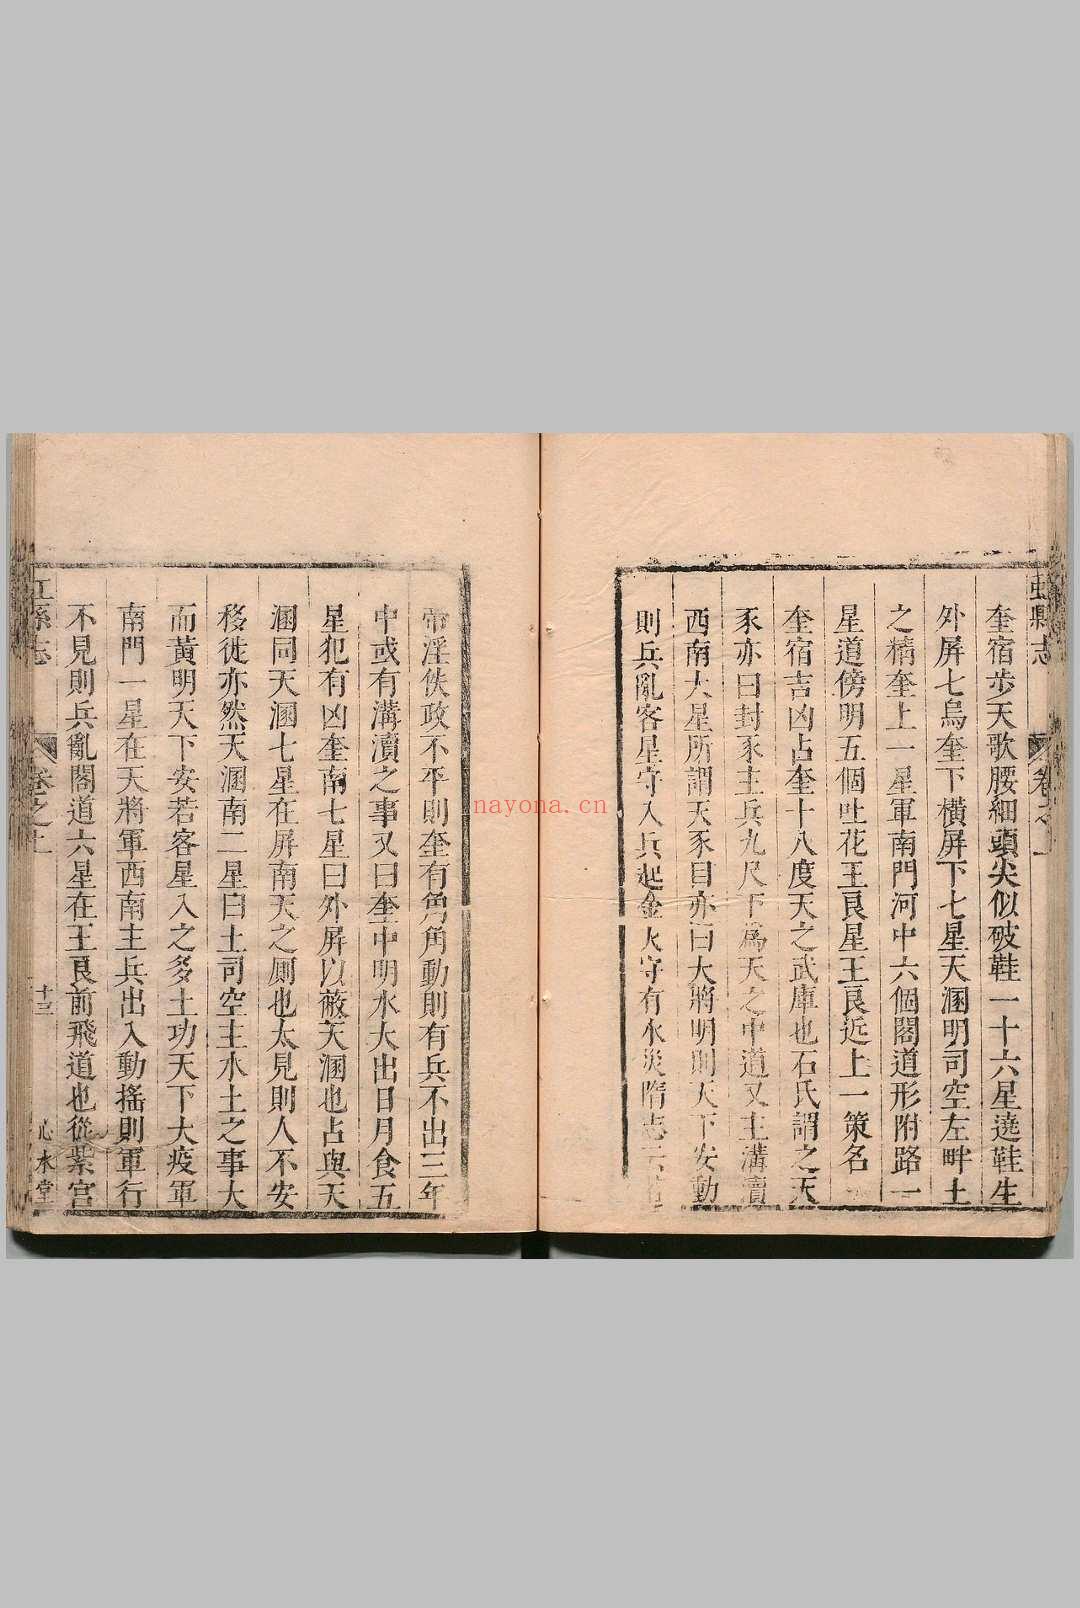 虹縣志
卷之一
奎宿步天歌腰細頭尖似破鞋一十六星遶鞋生
外屏七烏奎下橫屏下七星天溷明司空左畔土
之精奎上一星軍南門河中六個閣道形附路一
星道傍明五個吐花王良星王良近上一策名
奎宿吉凶占奎十八度天之武庫也石氏謂之天
豕亦曰封豕主兵九尺下為天之中道又主溝瀆
西南大星所謂天豕目亦曰大將明則天下安動
則兵亂客星守入兵起金火守有水災隋志云若
帝淫佚政不平則奎有角角動則有兵不出三年
中或有溝瀆之事又曰奎中明水大出日月食五
星犯有凶奎南七星曰外屏以蔽天溷也占與天
溷同天溷七星在屏南天之厠也太見則人不安
移徙亦然天溷南二星曰土司空主水土之事大
而黃明天下安若客星入之多土功天下大疫軍
南門一星在天將軍西南主兵出入動搖則軍行
不見則兵亂閣道六星在王良前飛道也從紫宮
虹縣志
卷之一
十三
心水堂
nayona.cn